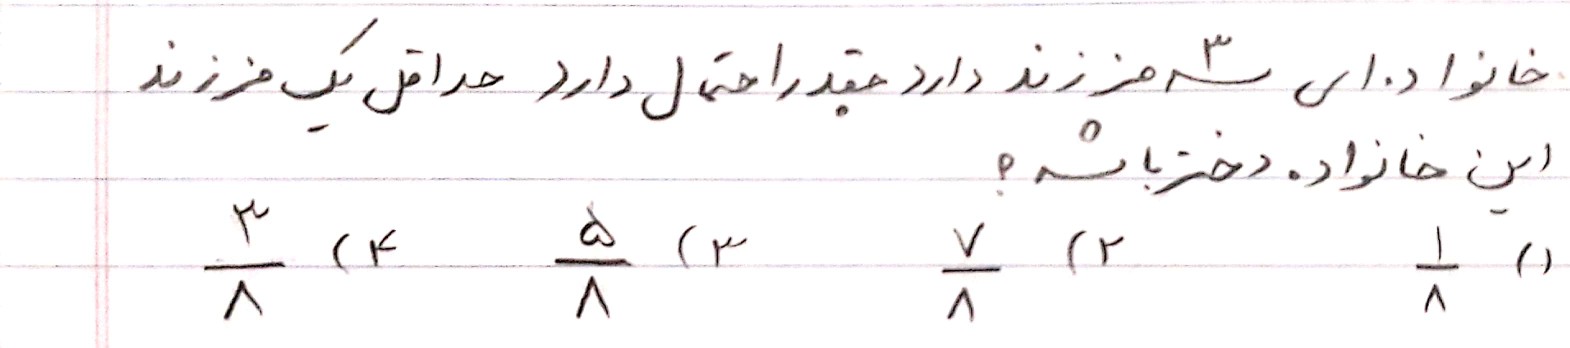 خانواده ای سه ۳ فرزند دارد چقدر احتمال دارد حداقل یک فرزند
این خانواده دختر باشد؟
۱) ۱/۸ ۲) ۷/۸ ۳) ۵/۸ ۴) ۳/۸